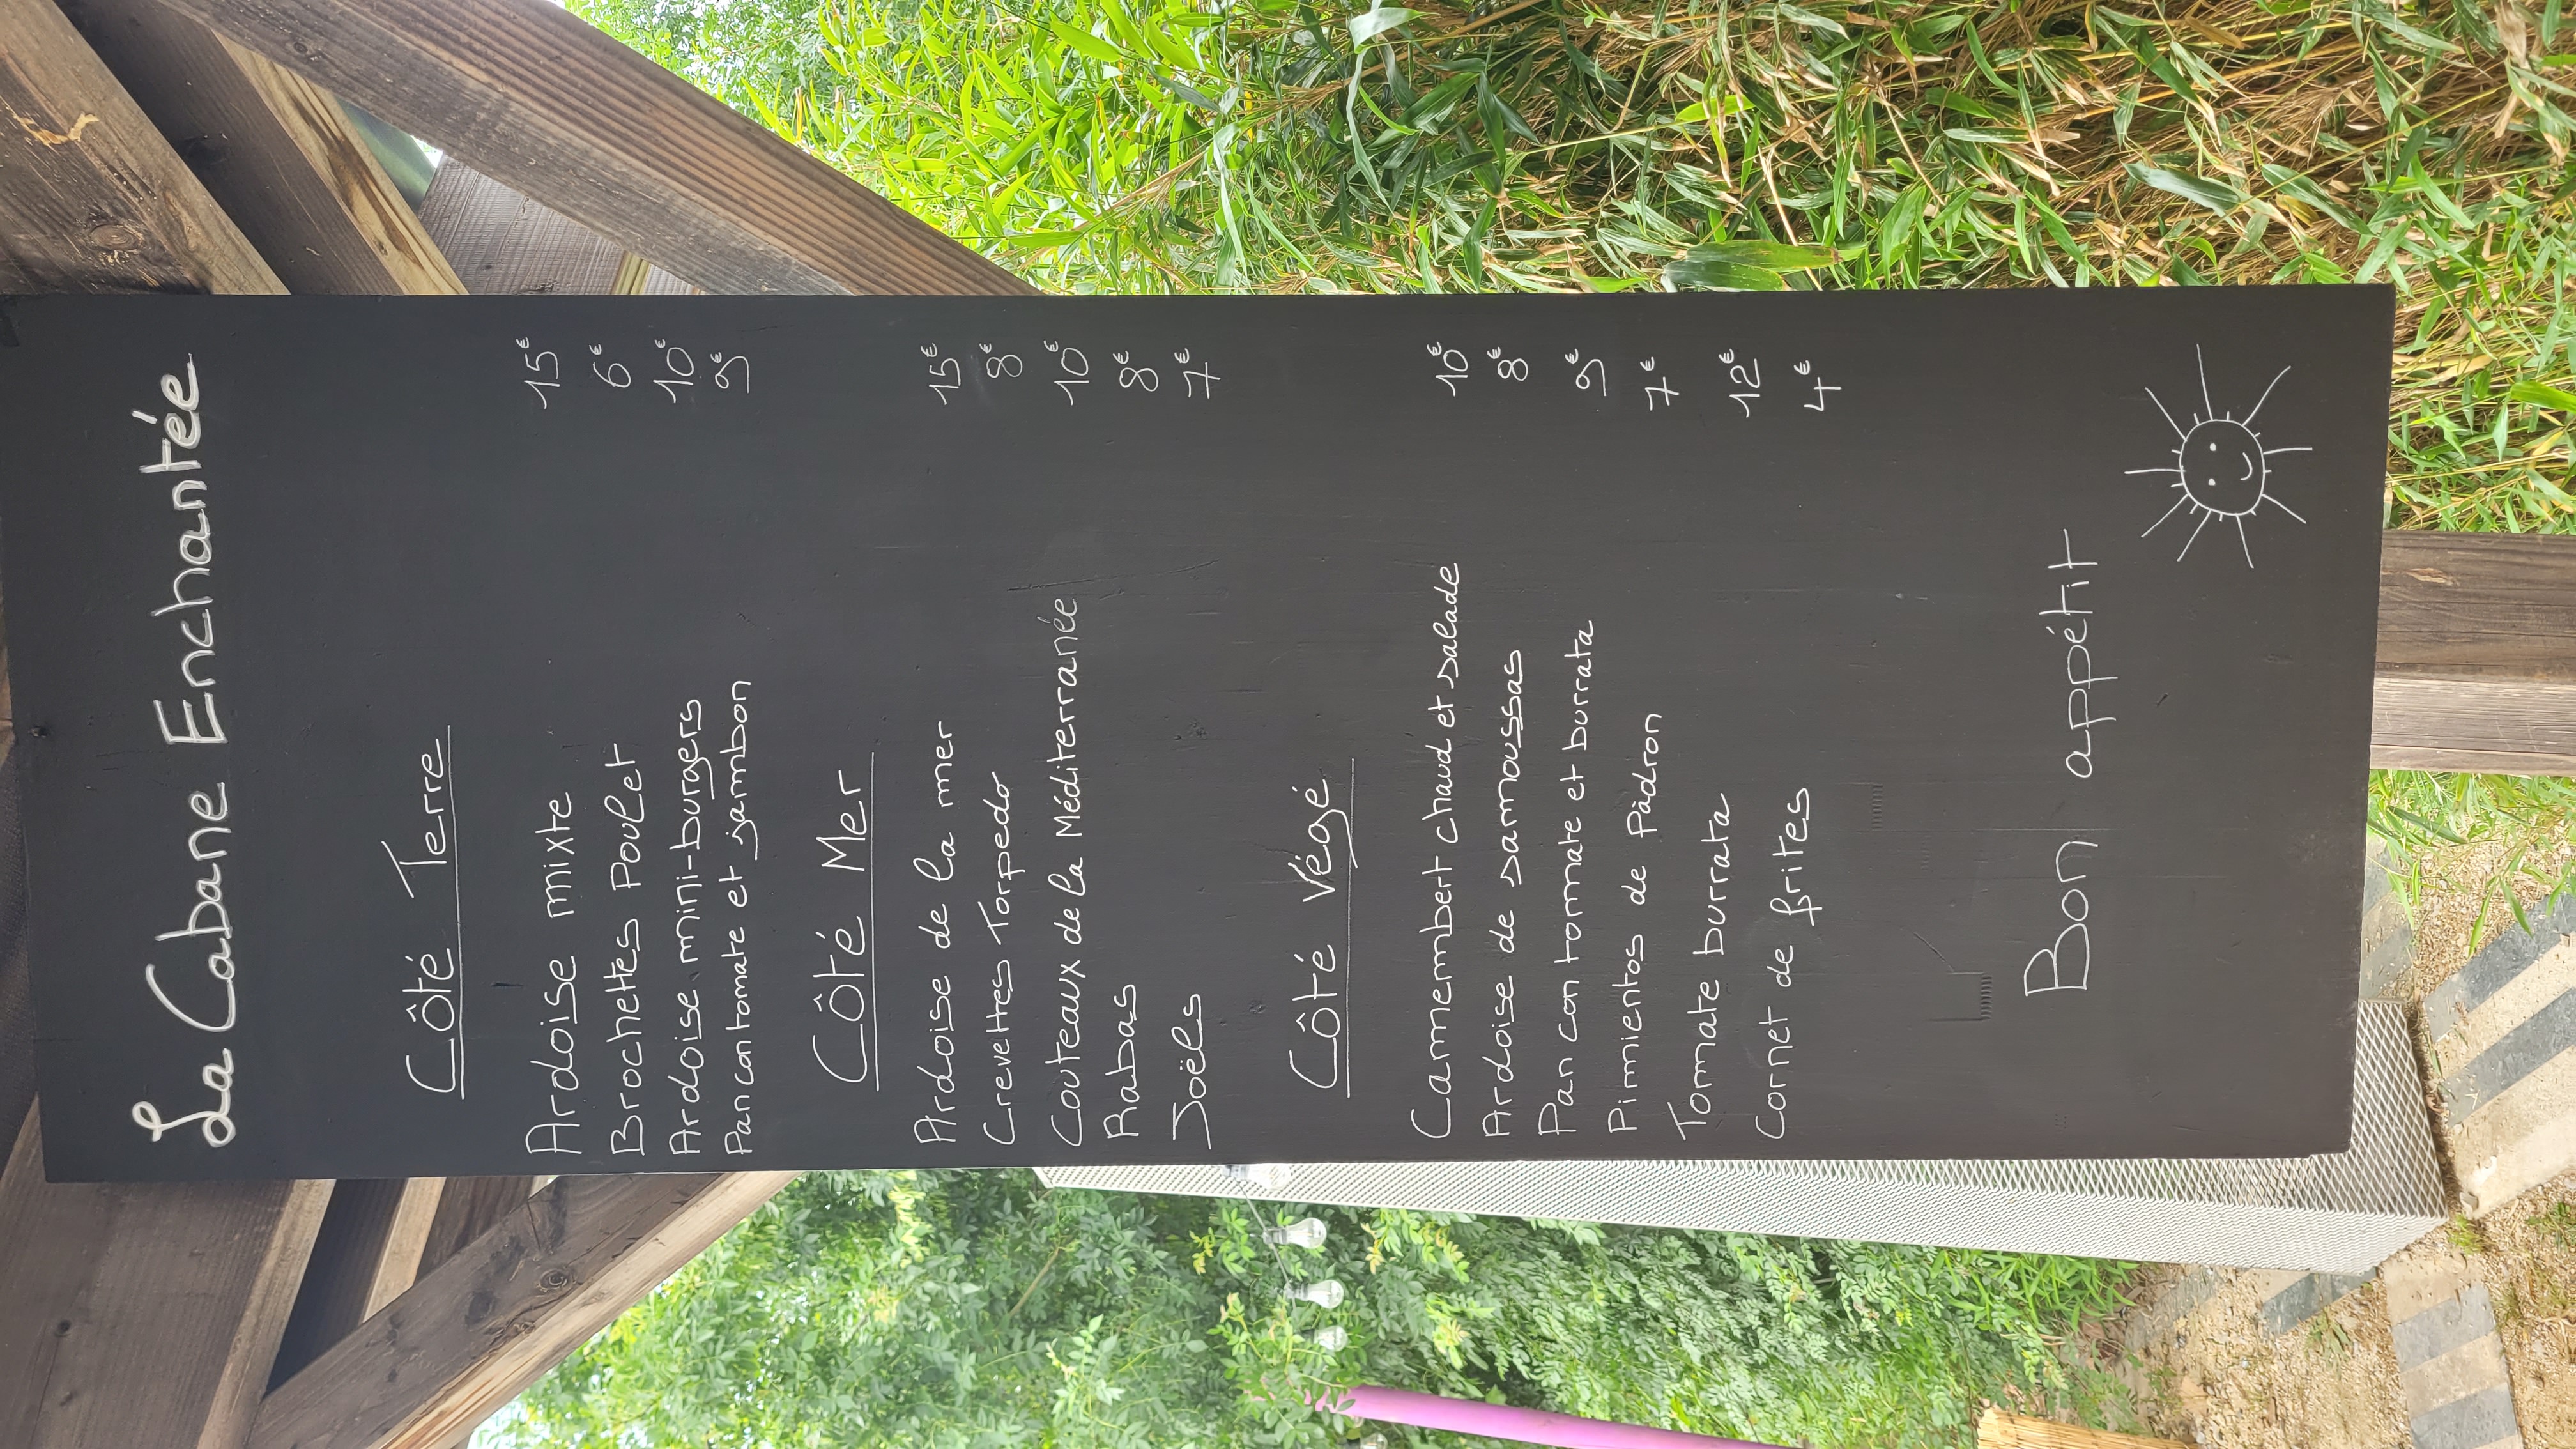 La Cabane Enchantée
Côté Terre
Ardoise mixte 15€
Brochettes Poulet 6€
Ardoise mini-burgers 10€
Pan con tomate et jambon 9€
Côté Mer
Ardoise de la mer 15€
Crevettes Torpedo 8€
Couteaux de la Méditerranée 10€
Rabas 8€
Joëls 7€
Côté Végé
Camembert chaud et salade 10€
Ardoise de samoussas 8€
Pan con tomate et burrata 9€
Pimientos de Pàdron 7€
Tomate burrata 12€
Cornet de frites 4€
Bon appétit